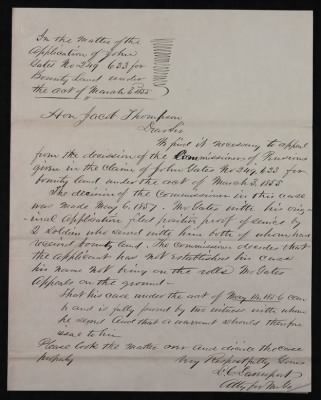 In the matter of the
Application of John
Gates No 249 633 for
Bounty Land under
the act of March 3 1855
Hon Jacob Thompson
Dear Sir
It necessary to appeal
from the decision of the Commissioner of Pensions
given in the claim of John Gates No 249,633 for
bounty land under the act of March 3. 1855
The decision of the Commissioner in this case
was made May 6. 1857. Mr Gates with his orig
inal Application filed positive proof of service by
2 soldiers who served with him both of whom have
received bounty land. The commissioner decides that
the applicant has not established his case
his name not being on the rolls Mr Gates
Appeals on the ground—
That his case under the act of May 14. 1856 can
and is fully proved by two witnesses with whom
he served and that a warrant should therefore
issue to him
Please look the matter over and dispose the case
properly
Very Respectfully Yours
Davenport
Atty for Mr G